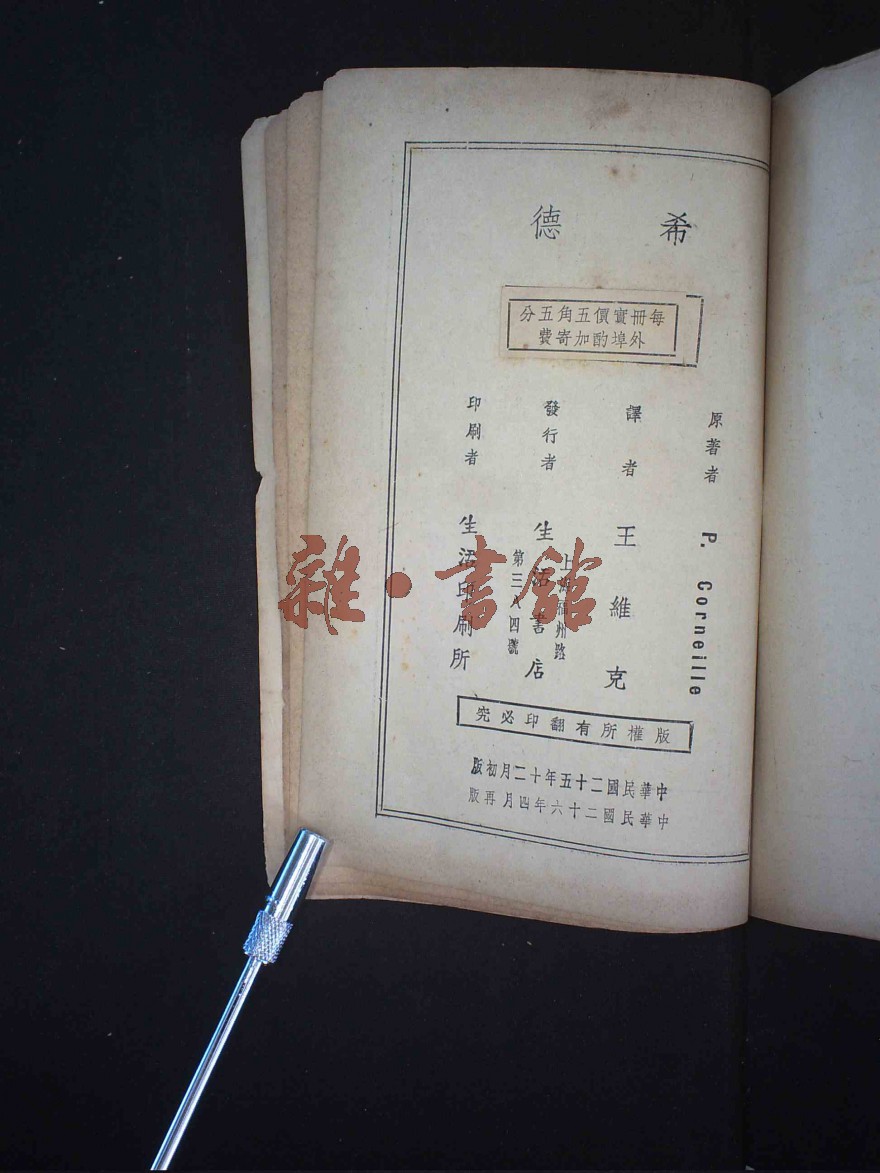 希德
每冊實價五角五分
外埠酌加寄費
原著者 P. Corneille
譯者 王維克
發行者 生活書店
上海福州路
第三八四號
印刷者 生活印刷所
版權所有翻印必究
中華民國二十五年十二月初版
中華民國二十六年四月再版
雜·書館